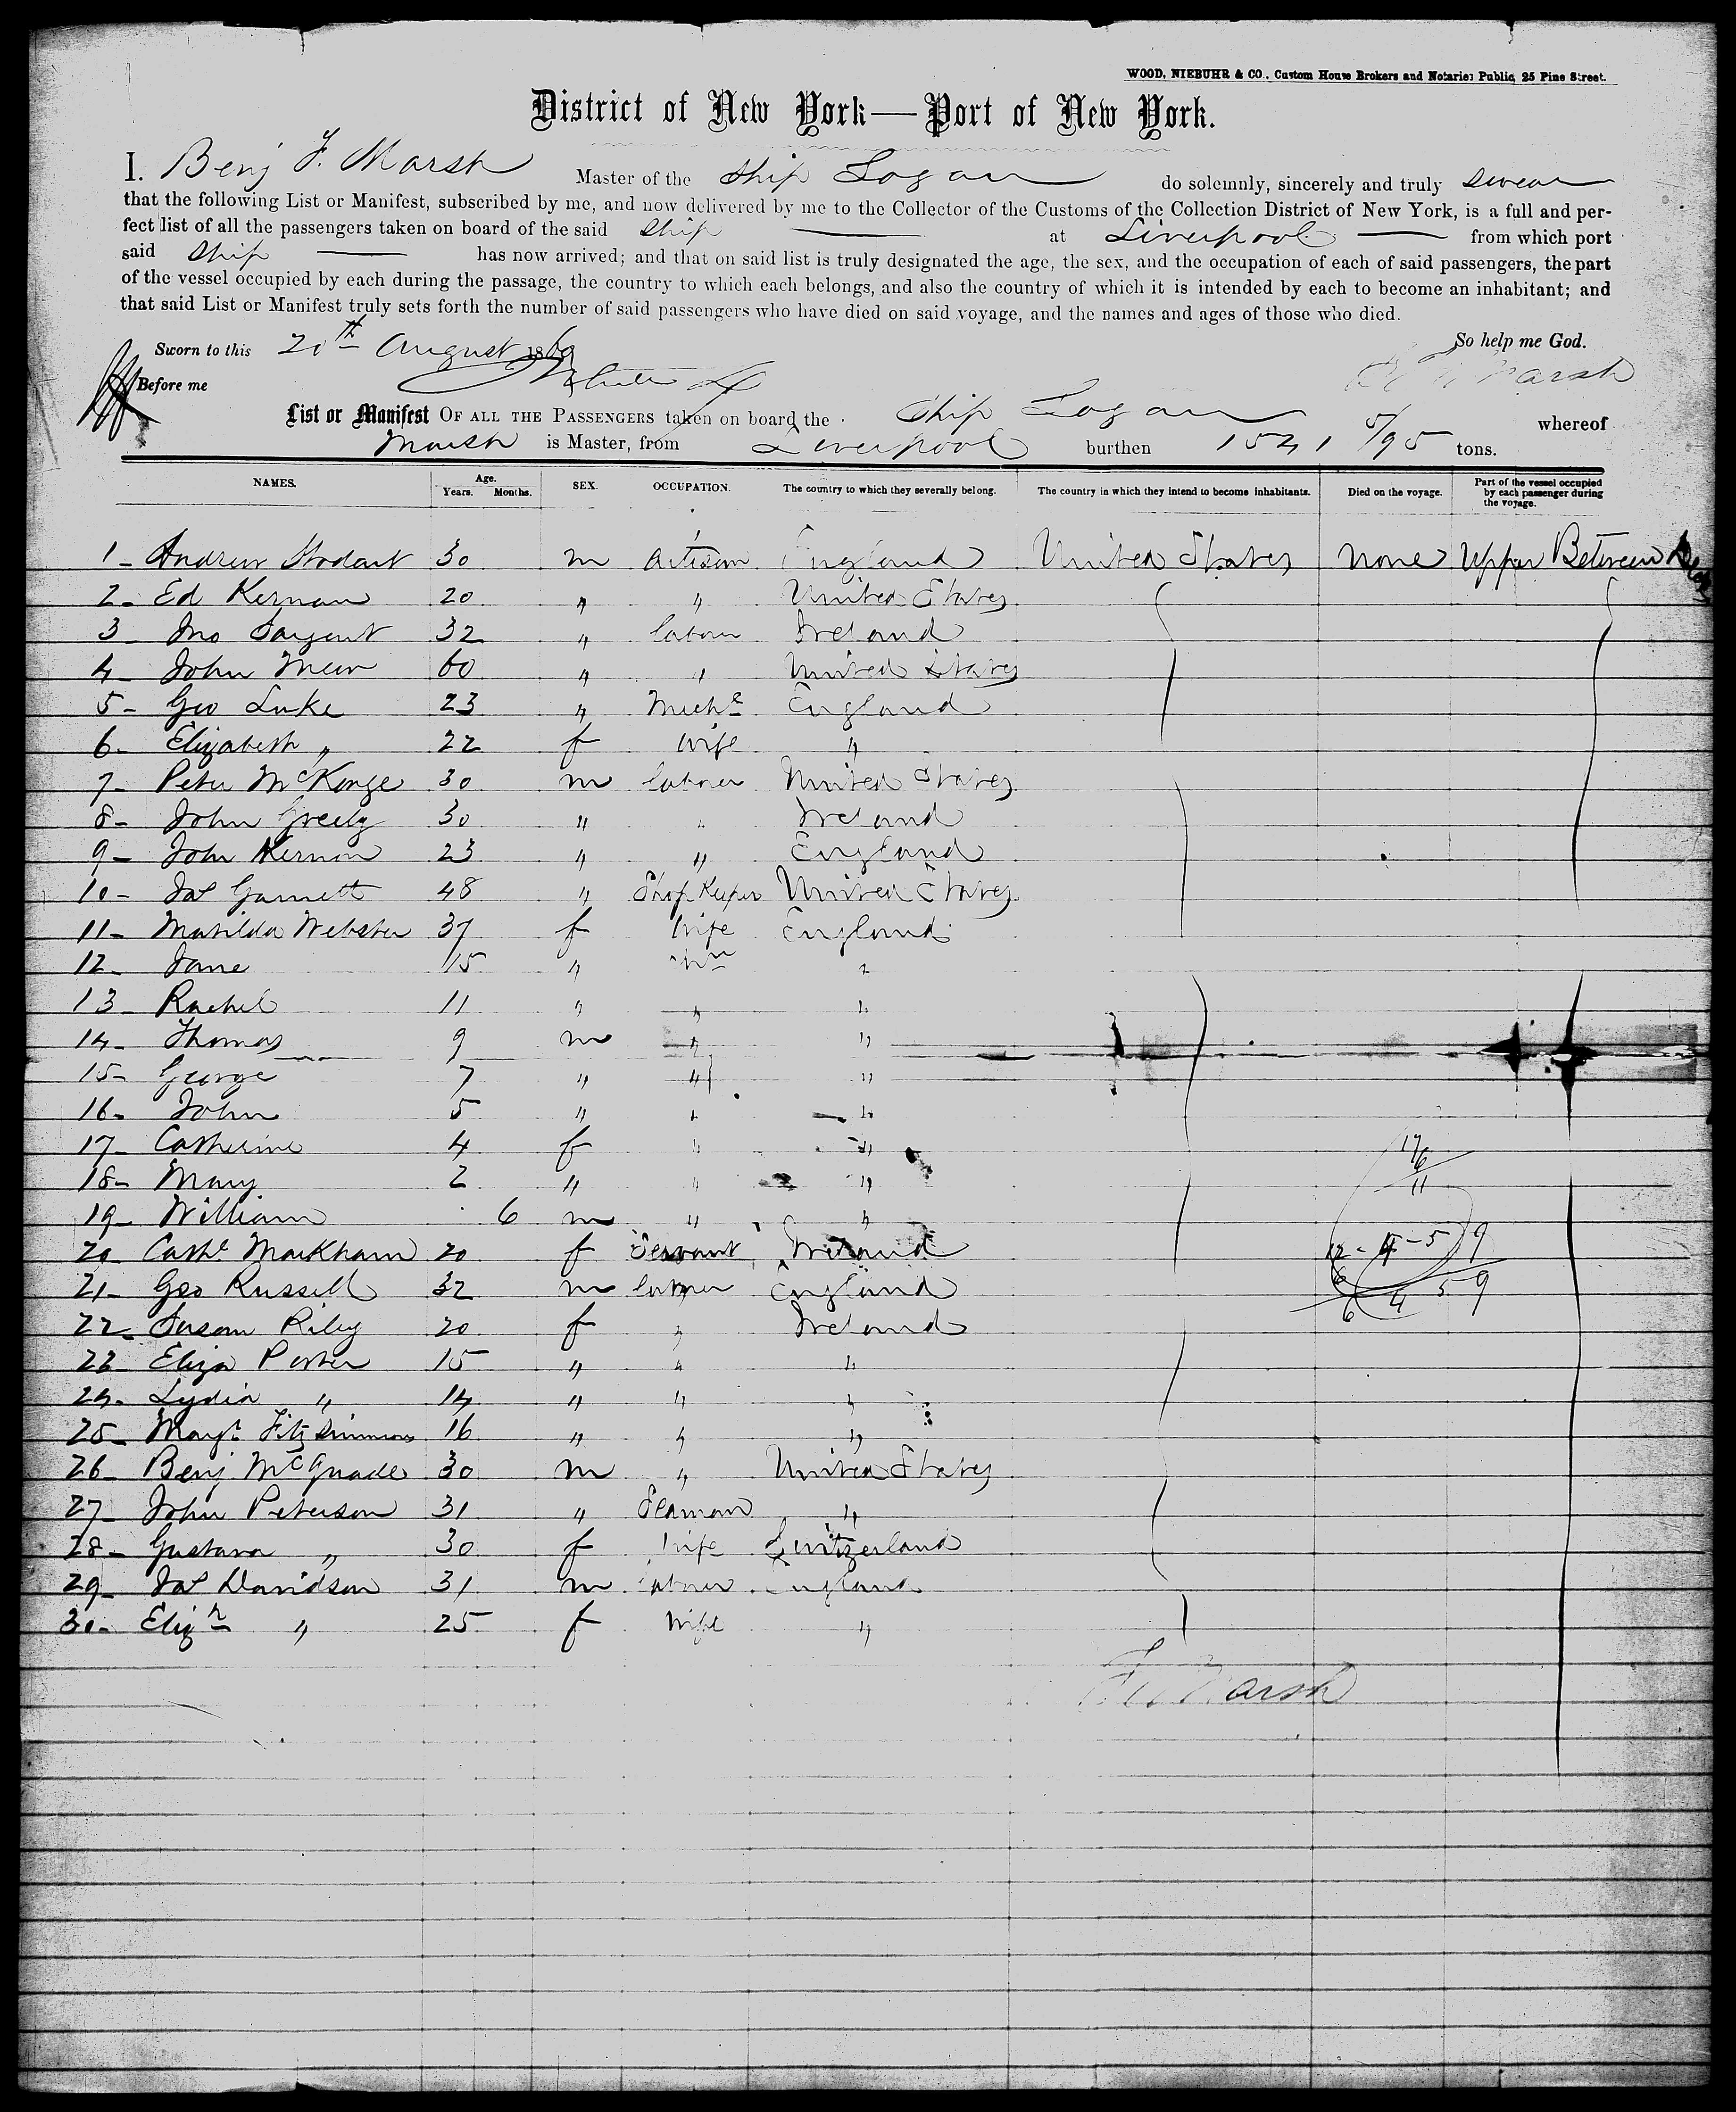 WOOD, NIEBUHR & CO., Custom House Brokers and Notaries Public, 25 Pine Street.
District of New York—Port of New York.
I. Benj F. Marsh Master of the Ship Logan do solemnly, sincerely and truly swear
that the following List or Manifest, subscribed by me, and now delivered by me to the Collector of the Customs of the Collection District of New York, is a full and per-
fect list of all the passengers taken on board of the said Ship at Liverpool from which port
said Ship has now arrived; and that on said list is truly designated the age, the sex, and the occupation of each of said passengers, the part
of the vessel occupied by each during the passage, the country to which each belongs, and also the country of which it is intended by each to become an inhabitant; and
that said List or Manifest truly sets forth the number of said passengers who have died on said voyage, and the names and ages of those who died.
Sworn to this 20th August 1860 So help me God.
Before me Marsh
List or Manifest OF ALL THE PASSENGERS taken on board the Ship Logan whereof
Marsh is Master, from Liverpool burthen 1541 5/95 tons.
NAMES. Age. Years. Months. SEX. OCCUPATION. The country to which they severally belong. The country in which they intend to become inhabitants. Died on the voyage. Part of the vessel occupied by each passenger during the voyage.
1 - Andrew Stodart 30 m Artisan England United States None Upper Between Decks
2 - Ed Kernan 20 " " United States
3 - Jno Sargent 32 " labour Ireland
4 - John Mew 60 " " United States
5 - Geo Luke 23 " Mechc England
6 - Elizabeth " 22 f Wife "
7 - Peter McKonge 30 m labourer United States
8 - John Greely 30 " " Ireland
9 - John Kernon 23 " " England
10 - Jas Garnett 48 " Shop Keeper United States
11 - Matilda Webster 37 f Wife England
12 - Jane 15 " "
13 - Rachel 11 " " "
14 - Thomas 9 m " "
15 - George 7 " " "
16 - John 5 " " "
17 - Catherine 4 f " "
18 - Mary 2 " " "
19 - William 6 m " "
20 - Cathe Markham 20 f Servant Ireland
21 - Geo Russell 32 m labourer England
22 - Susan Riley 20 f " Ireland
23 - Eliza Porter 15 " " "
24 - Lydia " 14 " " "
25 - Margt Fitzsimmons 16 " " "
26 - Benj McGuade 30 m " United States
27 - John Peterson 31 " Seaman "
28 - Gustava " 30 f Wife Switzerland
29 - Jas Davidson 31 m labourer England
30 - Elizh " 25 f Wife "
Marsh